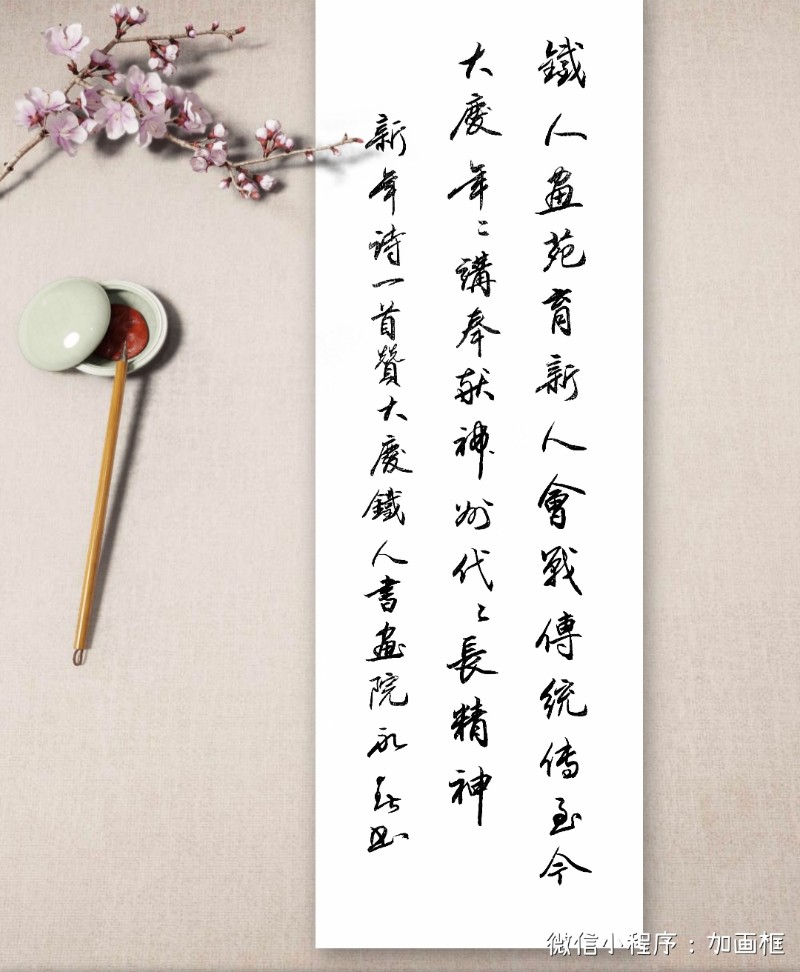 鐵人畫苑育新人會戰傳統傳至今
大慶年〻講奉献神州代〻長精神
新年诗一首贊大慶鐵人书画院永
微信小程序：加画框